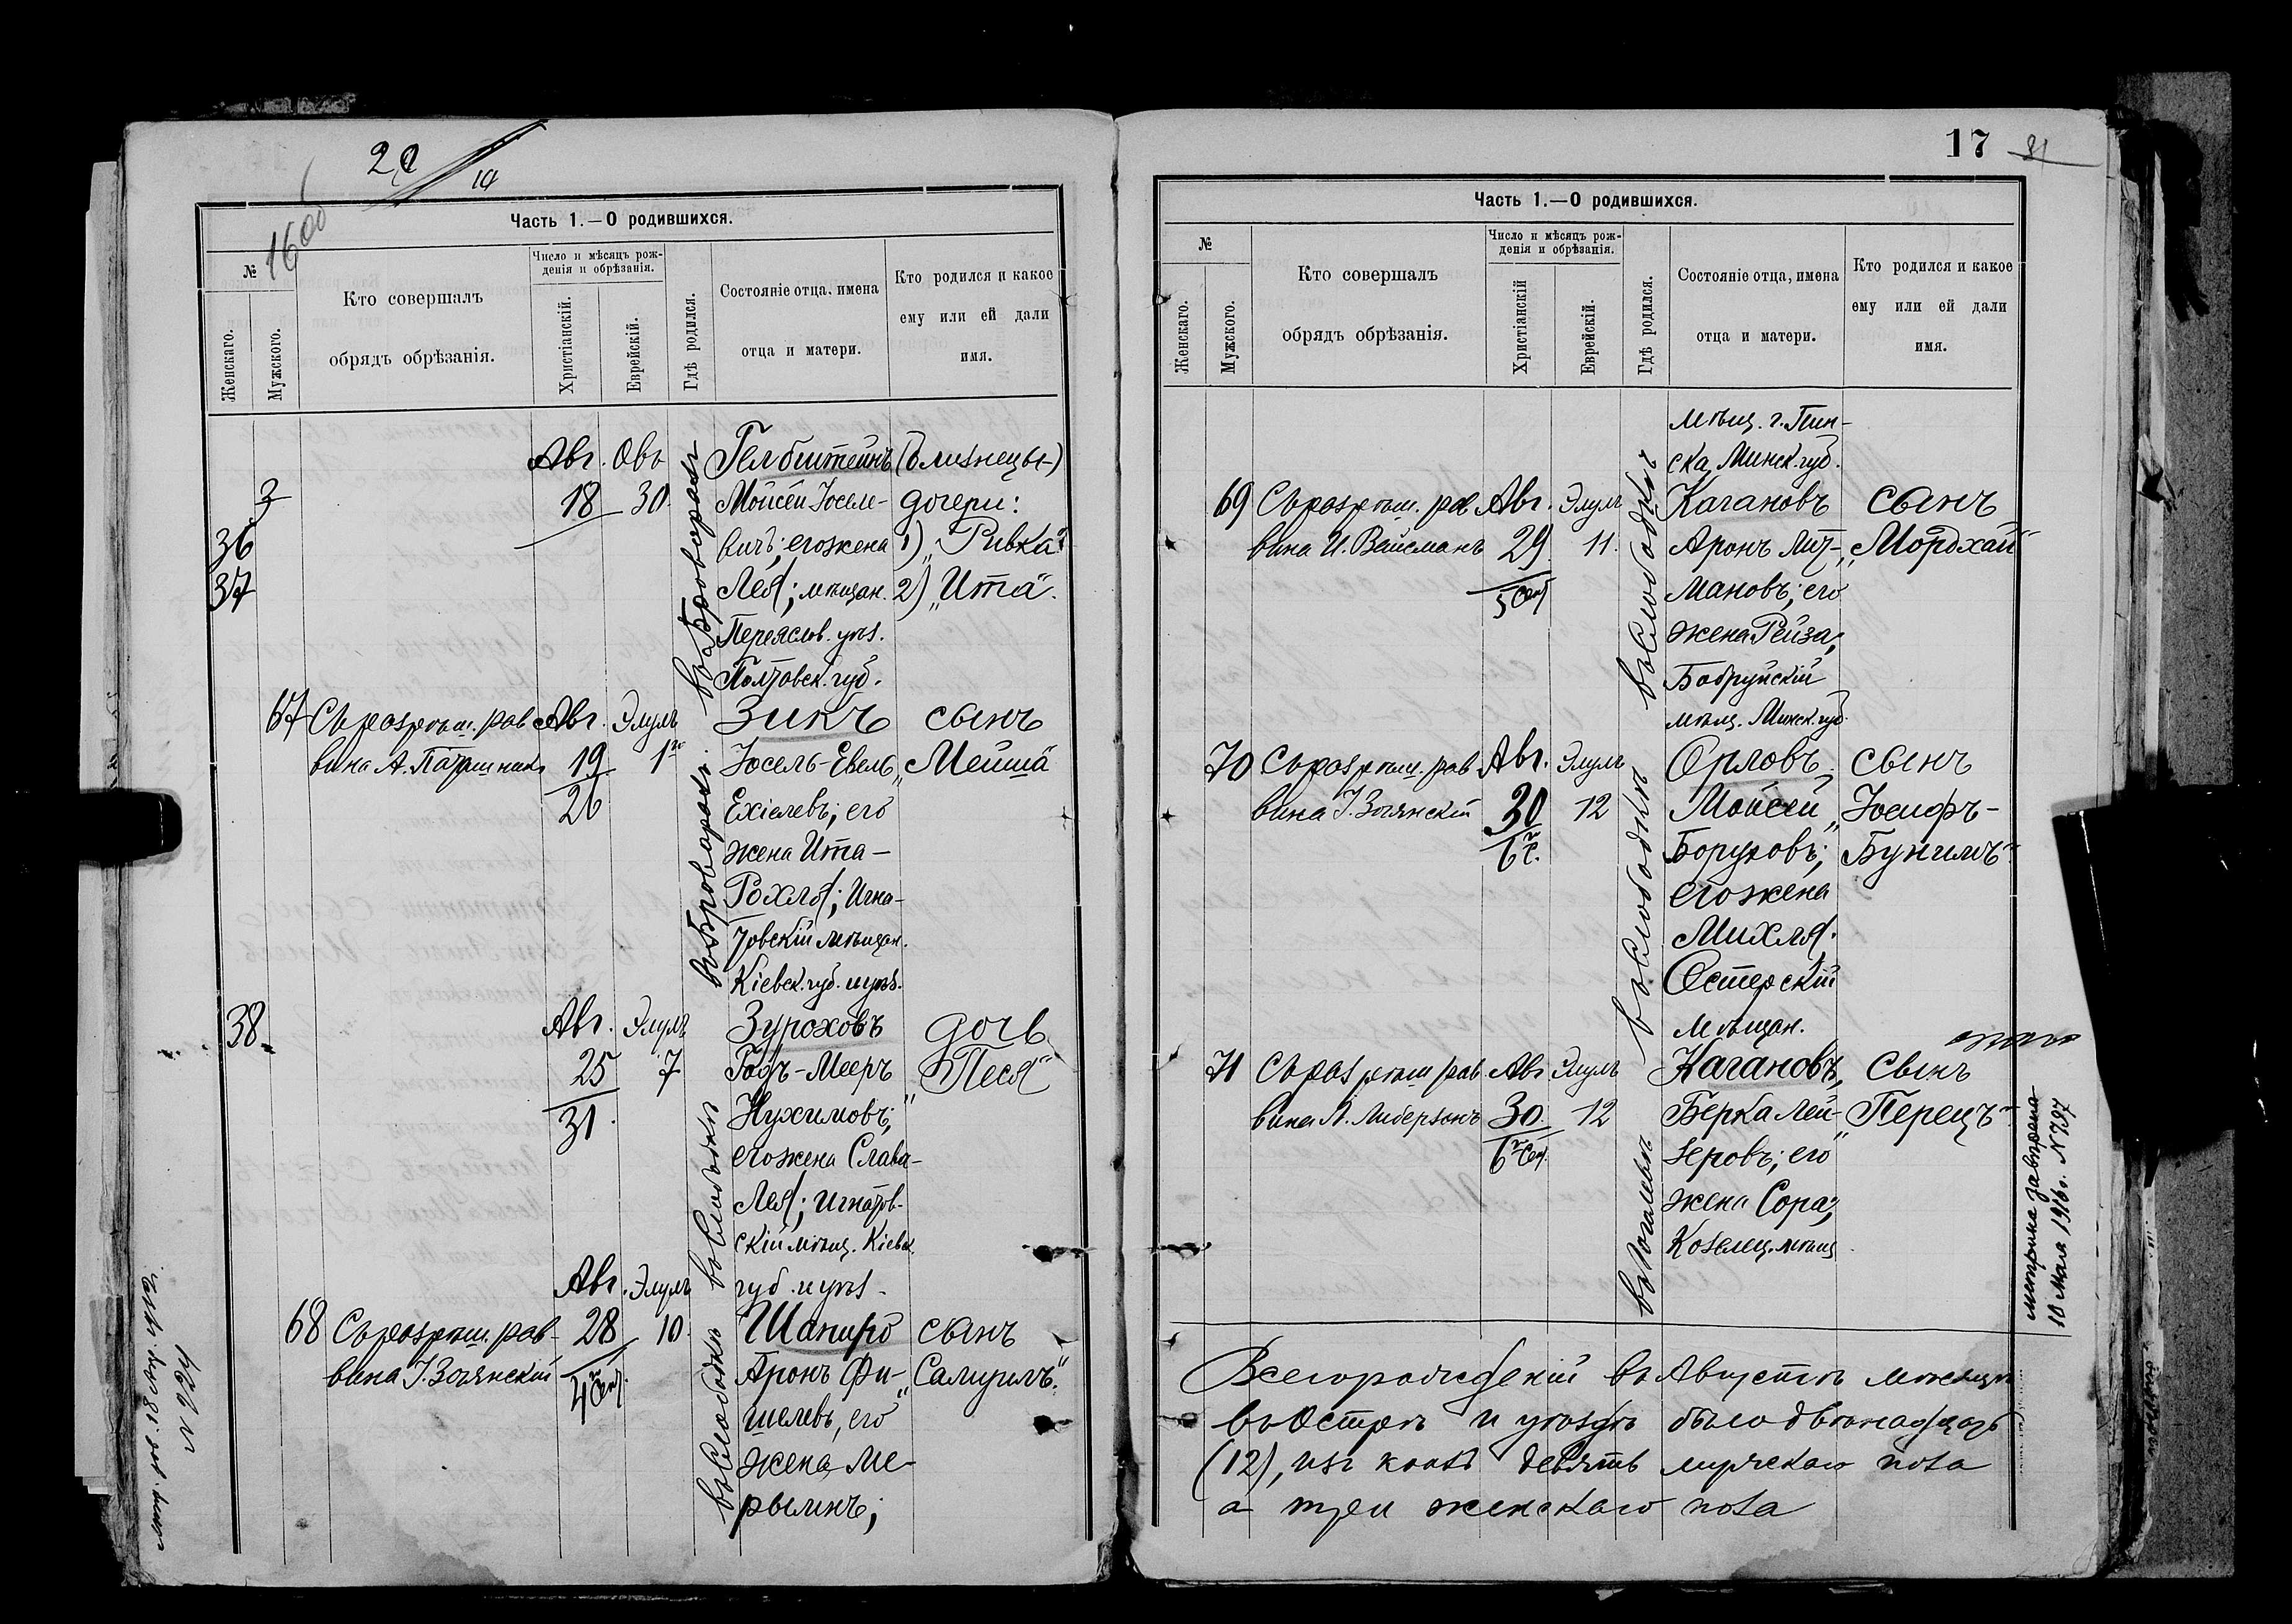 20
14
1600
Часть 1.—О родившихся.
№
Женскаго.
Мужского.
Кто совершалъ
обрядъ обрѣзанія.
Число и мѣсяцъ рож-
денія и обрѣзанія.
Христіанскій.
Еврейскій.
Гдѣ родился.
Состояніе отца, имена
отца и матери.
Кто родился и какое
ему или ей дали
имя.
Авг. Овъ Гелбштейнъ (близнецы-)
3 18 30. Мойсей Іоселе- дочери:
36 вичъ; его жена 1) „Ривка"
37 Лея; мѣщан. 2) „Ита".
Переяслов. уѣз.
Полтавск. губ.
въ Броварахъ
67 Съ разрѣш. рав Авг. Элулъ Зикъ сынъ
вина А. Паташникъ 19 1го Іосель-Евель „Мейша"
26 Ехіелевъ; его
жена Ита-
Рохля; Игна-
товскій мѣщан.
Кіевск. губ. и уѣз.
въ Броварахъ.
38. Авг. Элулъ Зуроховъ дочь
25 7 Гофъ-Мееръ „Песя"
31. Нухимовъ;
его жена Слава-
Лея; Игнатов-
скій мѣщ. Кіевск.
губ. и уѣз.
въ Слободкѣ
Авг. Элулъ
68 Съ разрѣш. рав- 28 10. Шапиро сынъ
вина І. Зогянскій 4го Сен. Аронъ Фи- „Самуилъ".
шелевъ, его
жена Ме-
рыминъ;
въ Слободкѣ
17
Часть 1.—О родившихся.
№
Женскаго.
Мужского.
Кто совершалъ
обрядъ обрѣзанія.
Число и мѣсяцъ рож-
денія и обрѣзанія.
Христіанскій
Еврейскій.
Гдѣ родился.
Состояніе отца, имена
отца и матери.
Кто родился и какое
ему или ей дали
имя.
мѣщ. г. Пин-
ска, Минск. губ.
69 Съ разрѣш. рав Авг. Элулъ Кагановъ сынъ
вина И. Вейсманъ 29 11. Аронъ Лит- „Мордхай"
5 Сен. мановъ; его
жена Рейза;
Бобруйскій
мѣщ. Минск. губ.
въ Слободкѣ
70 Съ разрѣш. рав Авг. Элулъ Орловъ, сынъ
вина І. Зогянскій 30 12 Мойсей „Іосифъ-
6го С. Боруховъ; Бунимъ"
его жена
Михля.
Остерскій
мѣщан.
въ Слободкѣ
71 Съ разрѣш рав Авг Элулъ Кагановъ, сынъ
вина Л. Либерзонъ 30. 12 Берка Лей- „Перецъ"
6го Сен. зеровъ; его
жена Сора;
Козелец. мѣщ
въ Гоголевѣ
метрика завѣрена
10 Мая 1916 г. № 797
Всего рожденій въ Августѣ мѣсяцѣ
въ Острѣ и уѣздѣ было двѣнадцать
(12), изъ коихъ девять мужскаго пола
а три женскаго пола